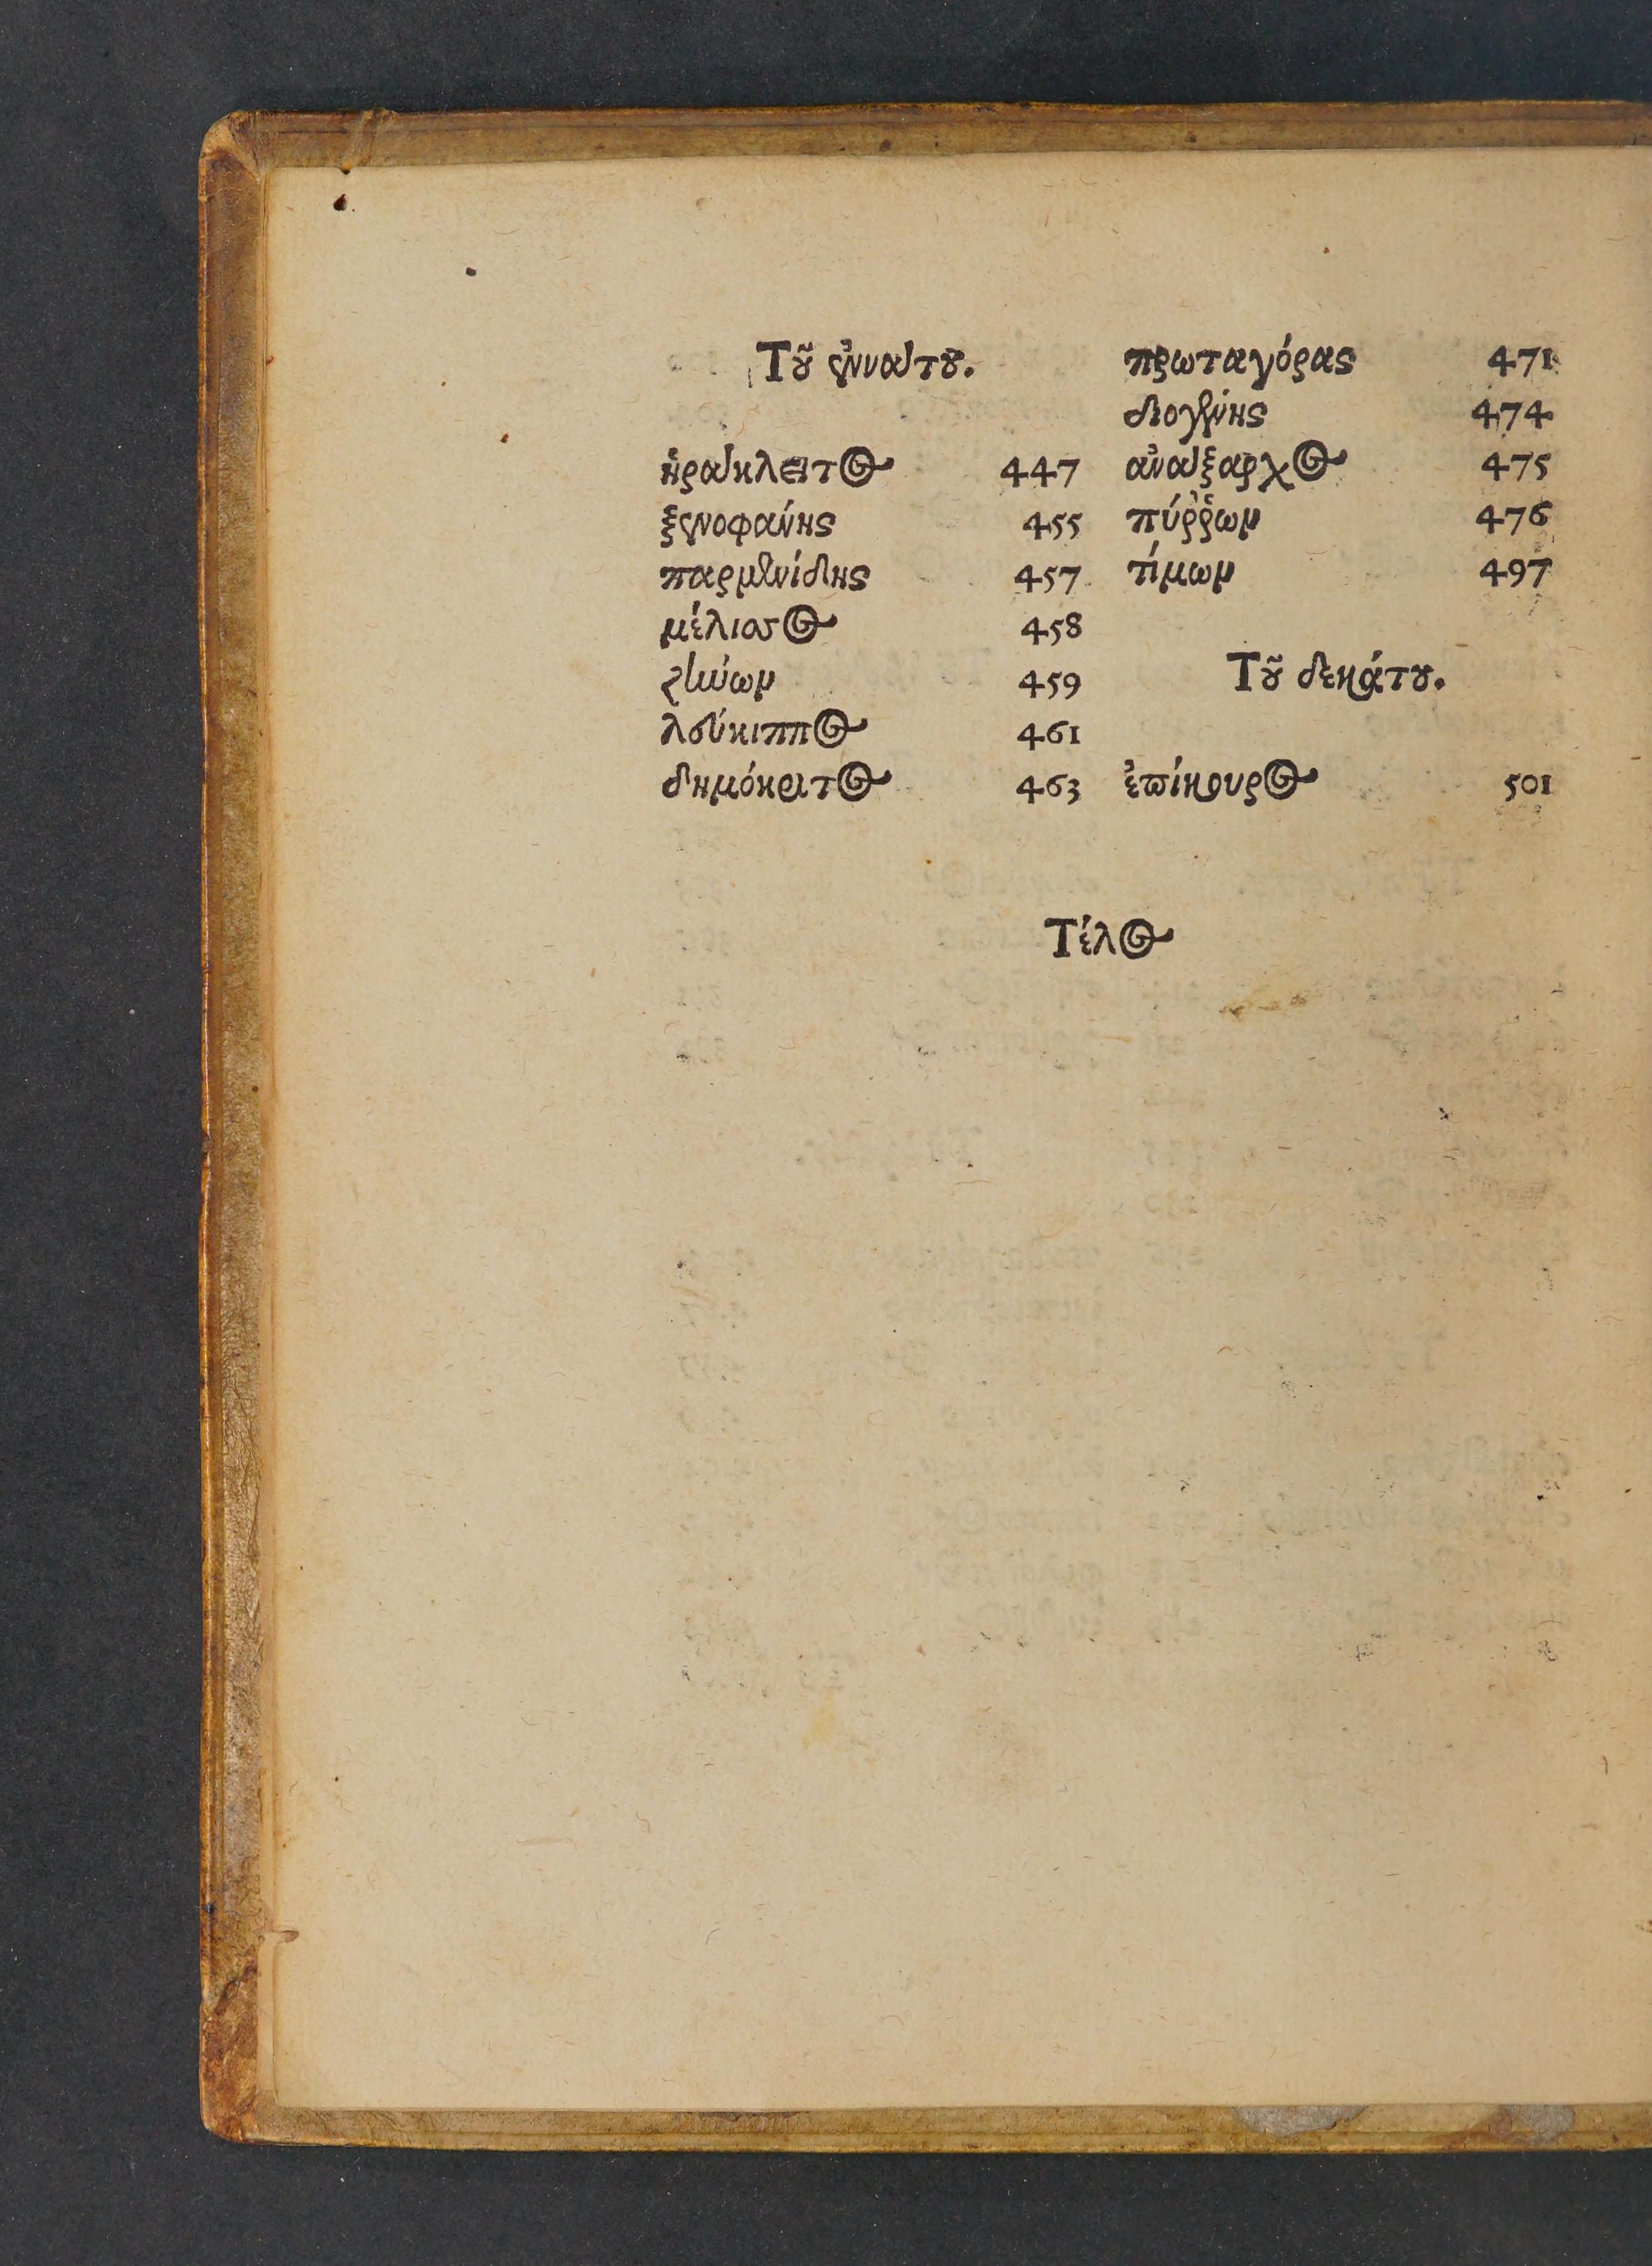 Τοῦ ἐννάτου.
ἡράκλειτος 447
ξενοφάνης 455
παρμενίδης 457
μέλισσος 458
ζήνων 459
λεύκιππος 461
δημόκριτος 463
πρωταγόρας 471
διογένης 474
ἀνάξαρχος 475
πύῤῥων 476
τίμων 497
Τοῦ δεκάτου.
ἐπίκουρος 501
Τέλος